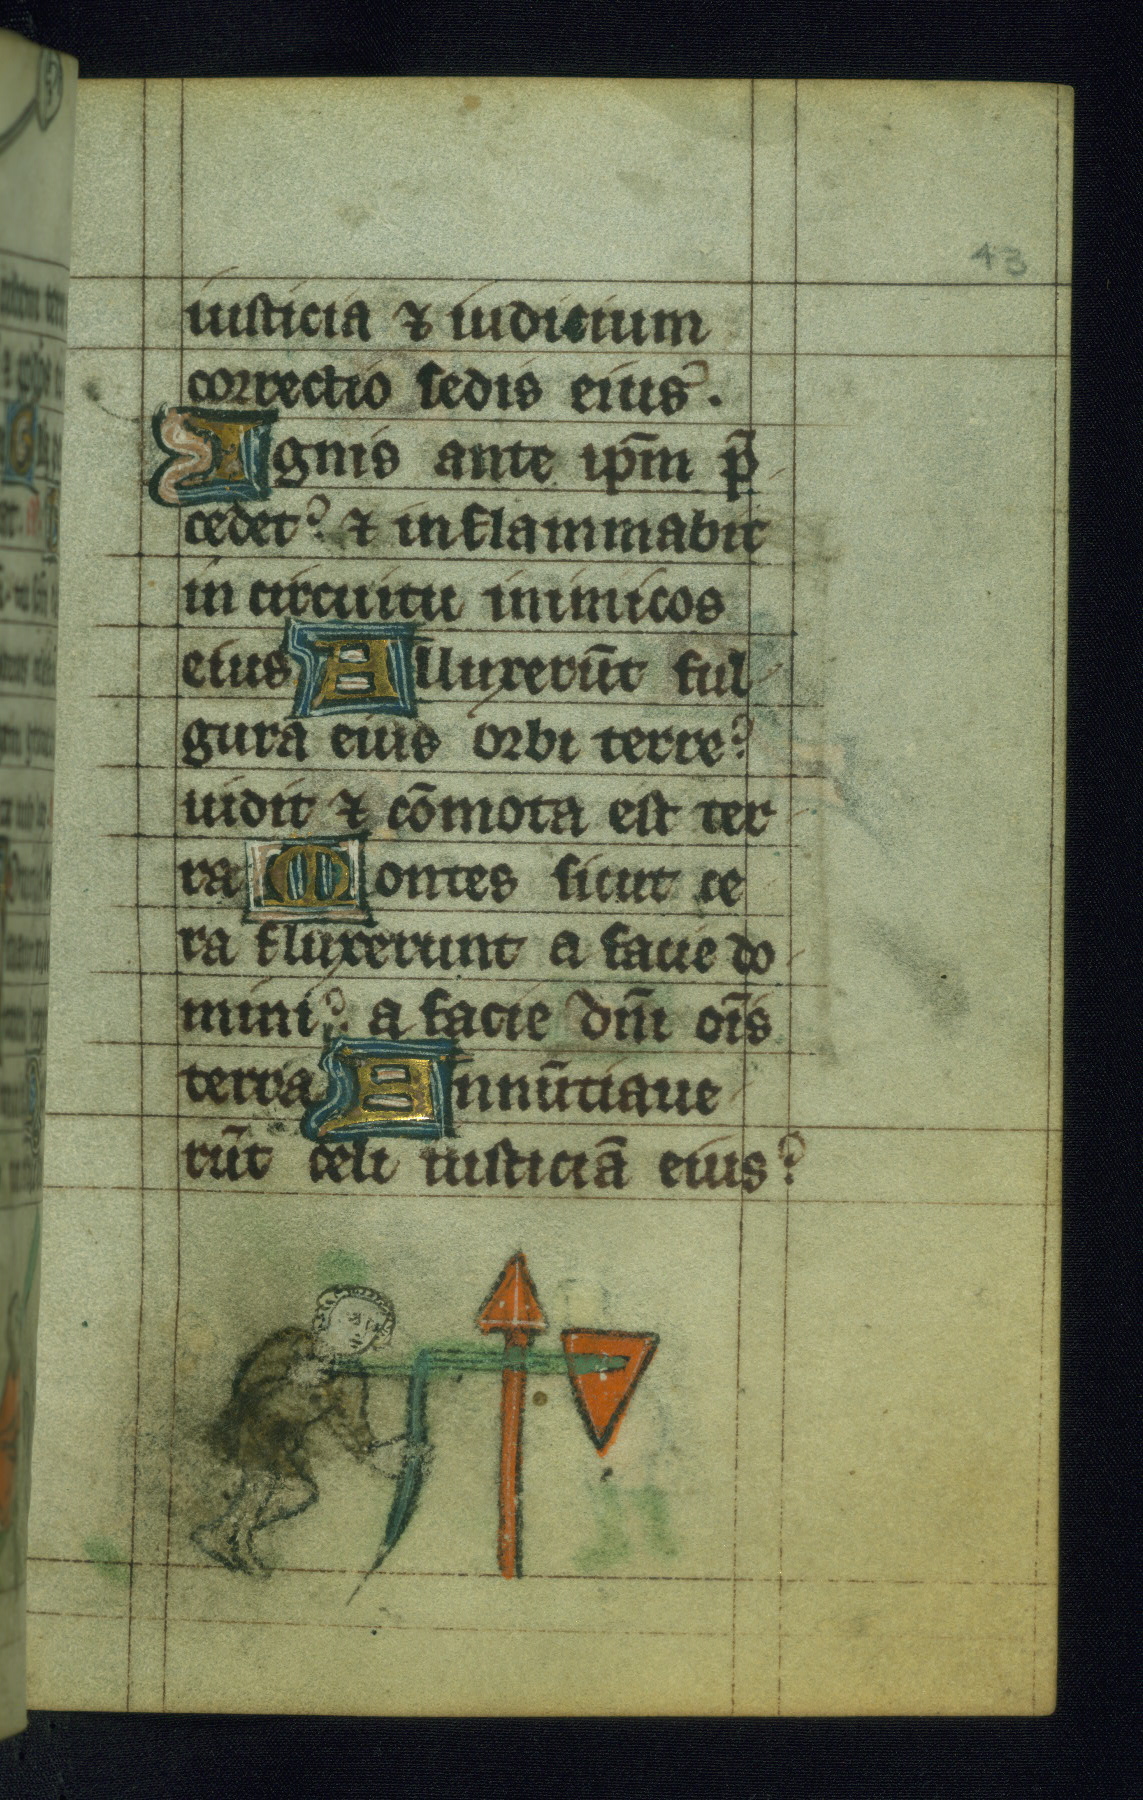 43
iusticia ⁊ iudicium
correctio sedis eius.
Ignis ante ip̄m p̄
cedet? ⁊ inflammabit
in circuitu inimicos
eius Alluxerūt ful
gura eius orbi terre?
uidit ⁊ cōmota est ter
ra Montes sicut ce
ra fluxerunt a facie do
mini? a facie dn̄i oīs
terra Annūtiaue
rūt celi iusticiā eius?